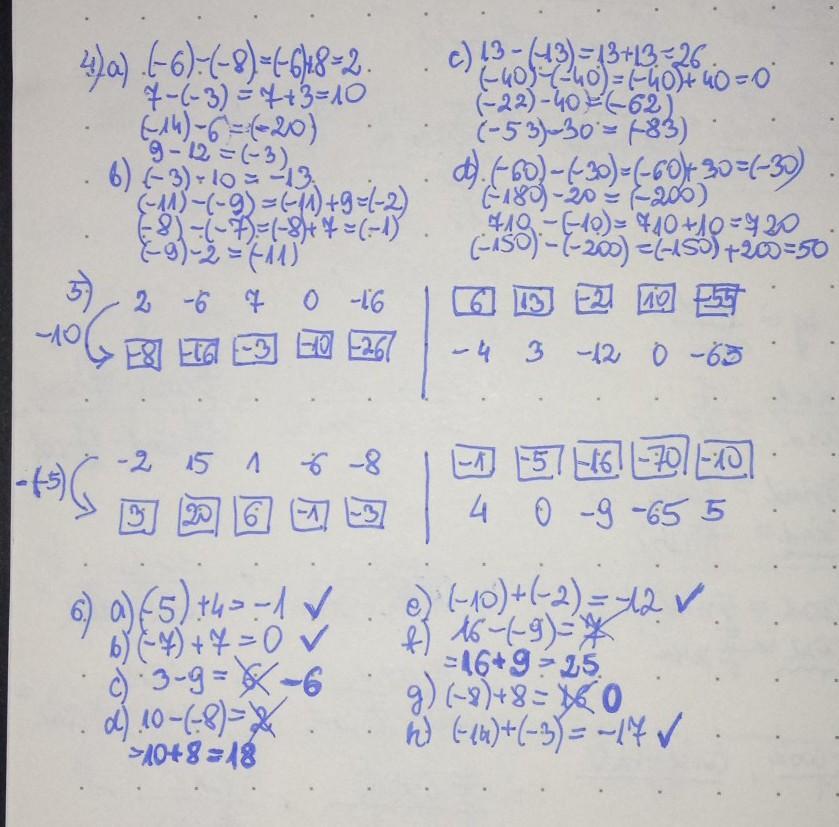 4) a) (-6)-(-8)=(-6)+8=2
7-(-3)=7+3=10
(-14)-6=(-20)
9-12=(-3)
b) (-3)-10=-13
(-11)-(-9)=(-11)+9=(-2)
(-8)-(-7)=(-8)+7=(-1)
(-9)-2=(-11)
c) 13-(-13)=13+13=26
(-40)-(-40)=(-40)+40=0
(-22)-40=(-62)
(-53)-30=(-83)
d) (-60)-(-30)=(-60)+30=(-30)
(-180)-20=(-200)
710-(-10)=710+10=720
(-150)-(-200)=(-150)+200=50
5)
2 -6 7 0 -16
-10
-8 -16 -3 -10 -26
6 13 -2 10 -55
-4 3 -12 0 -65
-2 15 1 -6 -8
-(-5)
3 20 6 -1 -3
-1 -5 -16 -70 -10
4 0 -9 -65 5
6) a) (-5)+4=-1 ✓
b) (-7)+7=0 ✓
c) 3-9=6 -6
d) 10-(-8)=2
=10+8=18
e) (-10)+(-2)=-12 ✓
f) 16-(-9)=7
=16+9=25
g) (-8)+8=16 0
h) (-14)+(-3)=-17 ✓